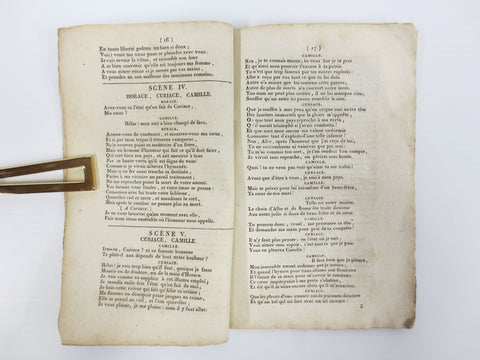 ( 16 )
En toute liberté goûtez un bien si doux ;
Voici venir ma sœur pour se plaindre avec vous :
Je vais revoir la vôtre, et résoudre son âme
A se bien souvenir qu'elle est toujours ma femme,
A vous aimer encor si je meurs par vos mains,
Et prendre en son malheur des sentimens romains.
SCÈNE IV.
HORACE, CURIACE, CAMILLE.
HORACE.
Avez-vous su l'état qu'on fait de Curiace,
Ma sœur ?
CAMILLE.
Hélas ! mon sort a bien changé de face.
HORACE.
Armez-vous de constance, et montrez-vous ma sœur,
Et si par mon trépas il retourne vainqueur,
Ne le recevez point en meurtrier d'un frère,
Mais en homme d'honneur qui fait ce qu'il doit faire,
Qui sert bien son pays, et sait montrer à tous
Par sa haute vertu qu'il est digne de vous.
Comme si je vivois, achevez l'hyménée ;
Mais si ce fer aussi tranche sa destinée,
Faites à ma victoire un pareil traitement,
Ne me reprochez point la mort de votre amant.
Vos larmes vont couler, et votre cœur se presse :
Consumez avec lui toute cette faiblesse,
Querellez ciel et terre, et maudissez le sort,
Mais après le combat ne pensez plus au mort.
( A Curiace. )
Je ne vous laisserai qu'un moment avec elle,
Puis nous irons ensemble où l'honneur nous appelle.
SCÈNE V.
CURIACE, CAMILLE.
CAMILLE.
Iras-tu, Curiace ? et ce funeste honneur
Te plaît-il aux dépends de tout notre bonheur ?
CURIACE.
Hélas ! je vois trop bien qu'il faut, quoique je fasse
Mourir ou de douleur, ou de la main d'Horace.
Je vais comme au supplice à cet illustre emploi ;
Je maudis mille fois l'état qu'on fait de moi ;
Je hais cette valeur qui fait qu'Albe m'estime ;
Ma flamme au désespoir passe jusques au crime,
Elle se prend au ciel, et l'ose quereller ;
Je vous plains, je me plains : mais il y faut aller.
( 17 )
CAMILLE.
Non, je te connois mieux ; tu veux que je te prie
Et qu'ainsi mon pouvoir t'excuse à ta patrie.
Tu n'es que trop fameux par tes autres exploits :
Albe a reçu par eux tout ce que tu lui dois.
Autre n'a mieux que toi soutenu cette guerre ;
Autre de plus de morts n'a couvert notre terre :
Ton nom ne peut plus croître, il ne lui manque rien ;
Souffre qu'un autre ici puisse ennoblir le sien.
CURIACE.
Que je souffre à mes yeux qu'on ceigne une autre tête
Des lauriers immortels que la gloire m'apprête,
Ou que tout mon pays reproche à ma vertu
Qu'il auroit triomphé si j'avois combattu,
Non, Albe, après l'honneur que j'ai reçu de toi,
Tu ne succomberas ni vaincras que par moi.
Tu m'as commis ton sort, je t'en rendrai bon compte,
Je vivrai sans reproche, ou périrai sans honte.
CAMILLE.
Quoi ! tu ne veux pas voir qu'ainsi tu me trahis ?
CURIACE.
Avant que d'être à vous, je suis à mon pays.
CAMILLE.
Mais te priver pour lui toi-même d'un beau-frère,
Ta sœur de son mari.
CURIACE.
Telle est notre misère.
Le choix d'Albe et de Rome ôte toute douceur
Aux noms jadis si doux de beau-frère et de sœur.
CAMILLE.
Tu pourras donc, cruel, me présenter sa tête,
Et demander ma main pour prix de ta conquête !
CURIACE.
Il n'y faut plus penser : en l'état où je suis,
Vous aimer sans espoir, c'est tout ce que je puis.
Vous en pleurez Camille !
CAMILLE.
Il faut bien que je pleure,
Mon insensible amant ordonne que je meure ;
Et quand l'hymen pour nous allume son flambeau
Il l'éteint de sa main pour m'ouvrir le tombeau.
Ce cœur impitoyable à ma perte s'obstine,
Et dit qu'il m'aime encore alors qu'il m'assassine.
CURIACE.
Que les pleurs d'une amante ont de puissans discours
Et qu'un bel œil est fort avec un tel secours !